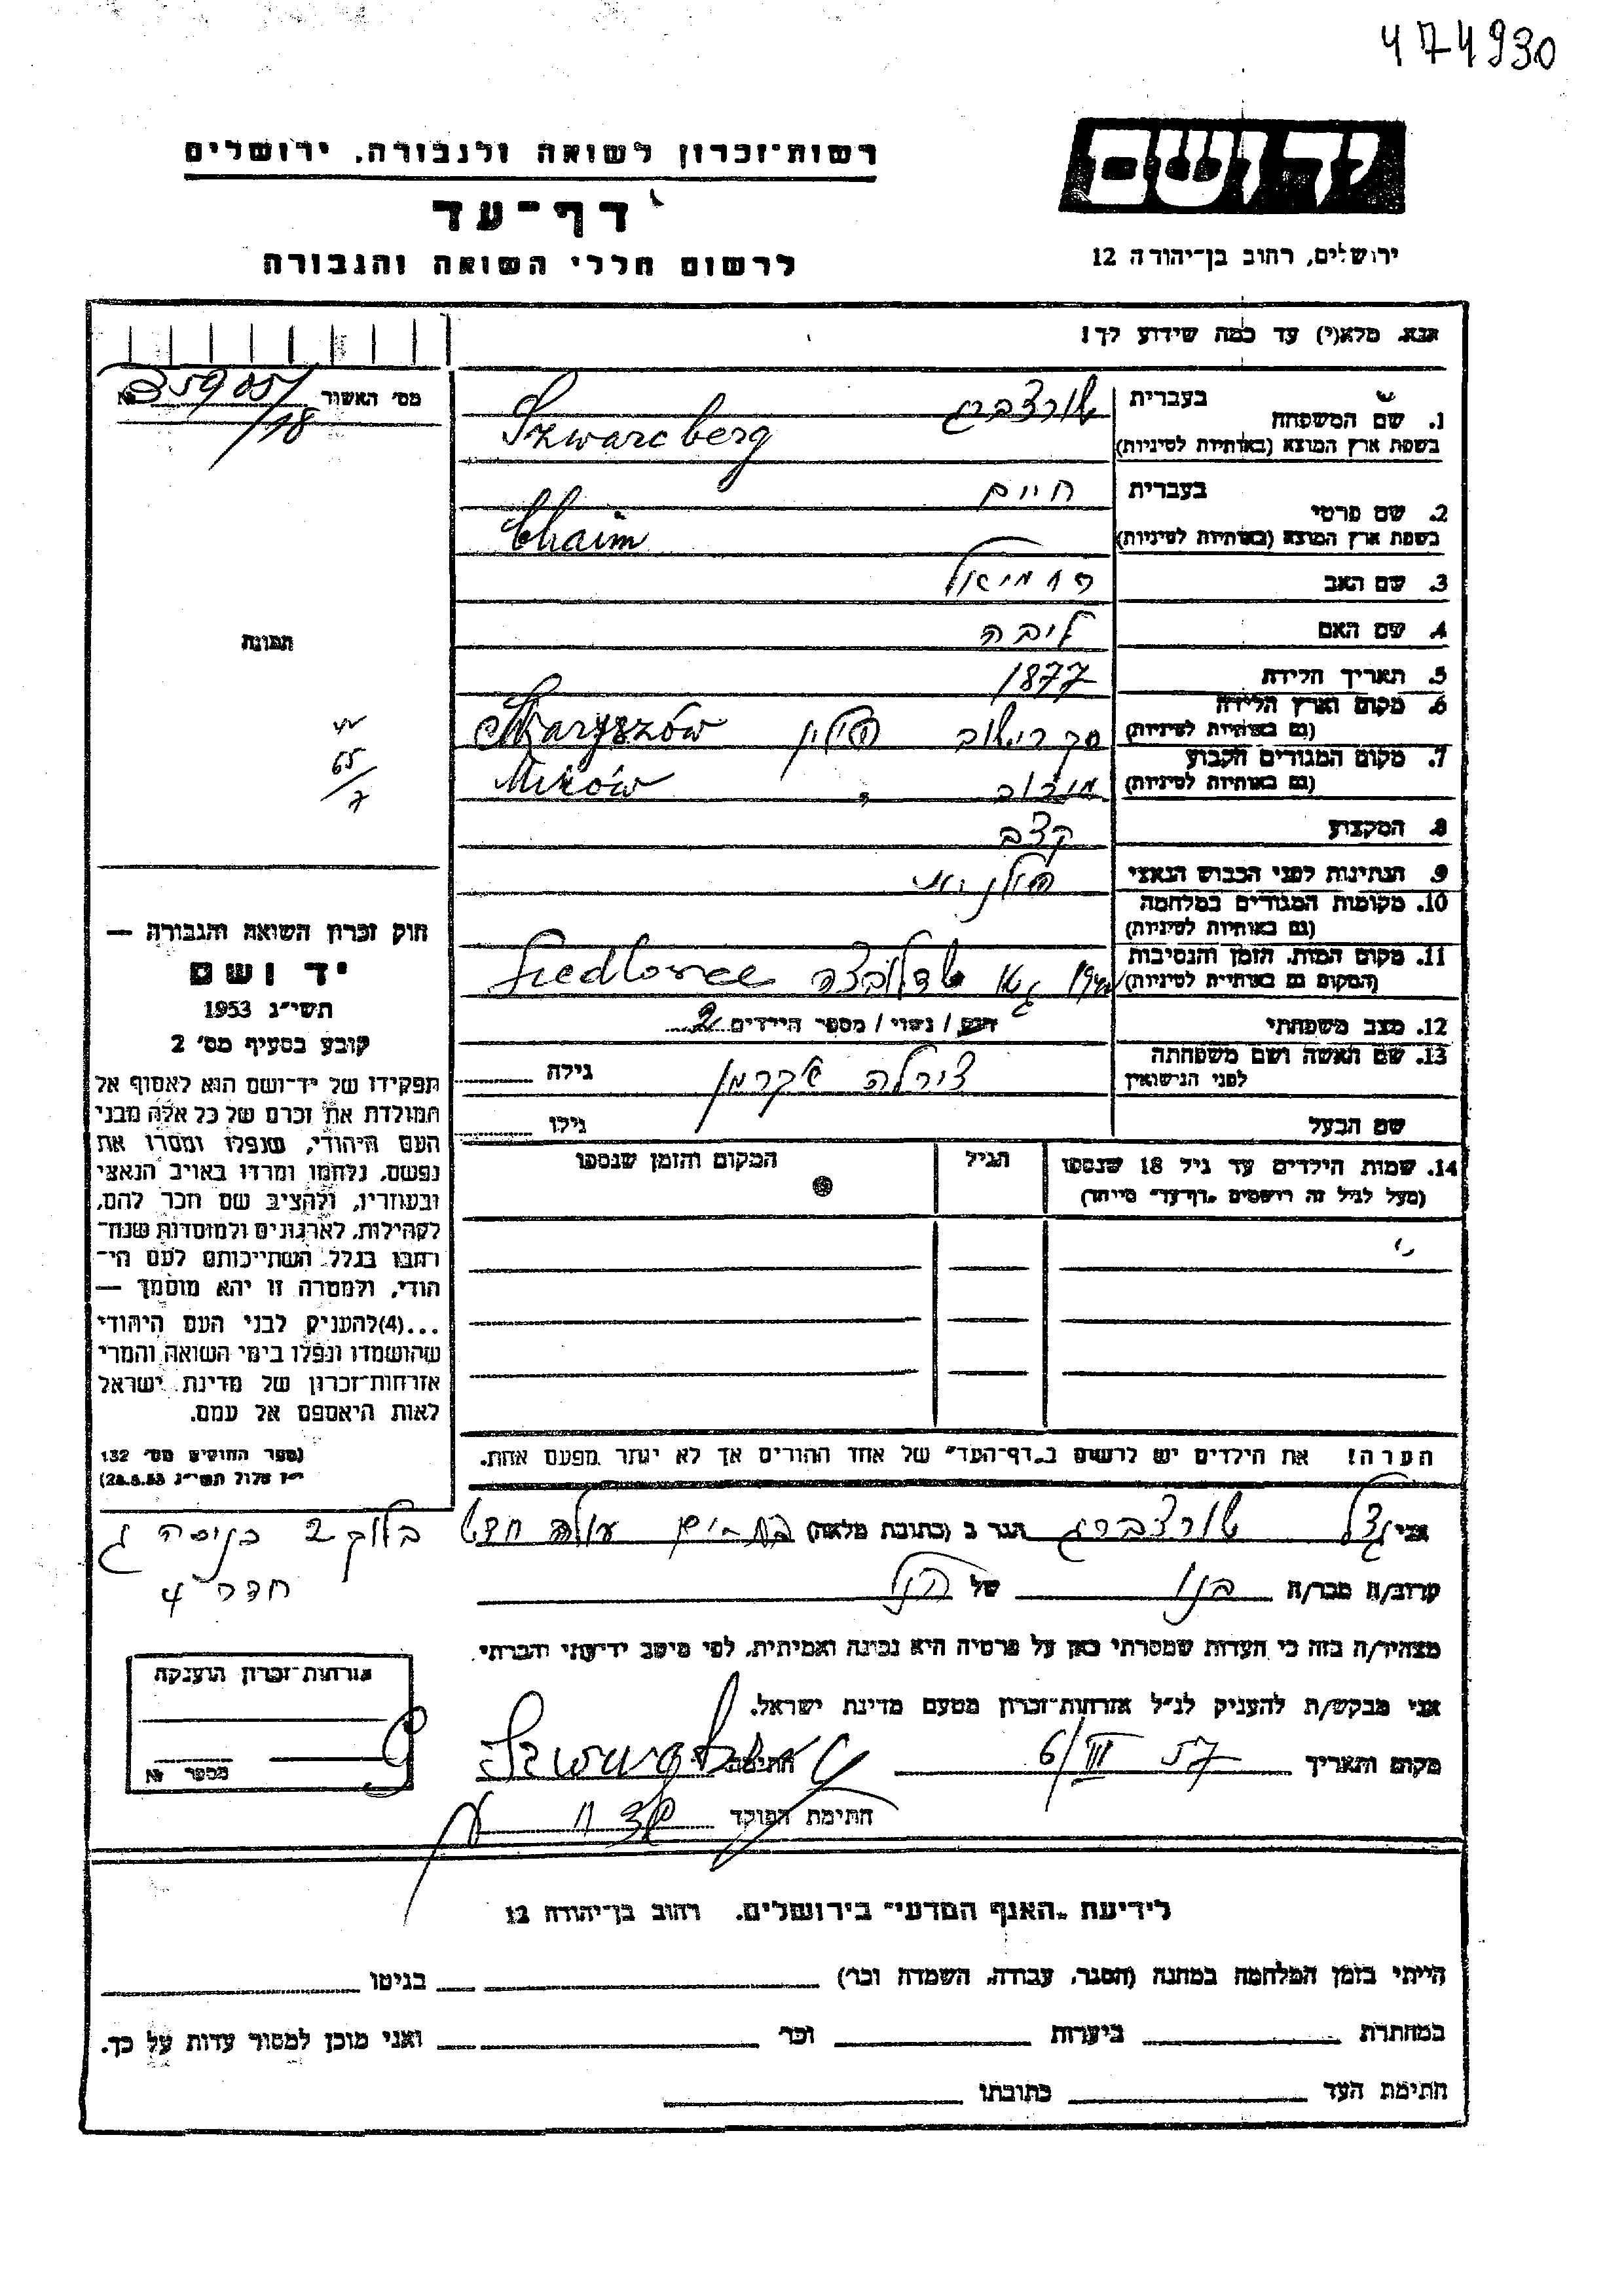 474930
יד ושם
רשות־זכרון לשואה ולגבורה, ירושלים
דף־עד
לרשום חללי השואה והגבורה
ירושלים, רחוב בן־יהודה 12
אנא, מלא(י) עד כמה שידוע לך!
מס' האשור № 35905/18
1. שם המשפחה בעברית שורצברג
בשפת ארץ המוצא (באותיות לטיניות) Szwarcberg
2. שם פרטי בעברית חיים
בשפת ארץ המוצא (באותיות לטיניות) Chaim
3. שם האב ירחמיאל
4. שם האם ליבה
5. תאריך הלידה 1877
6. מקום וארץ הלידה (גם באותיות לטיניות) סקרישוב פולין Skaryszów
7. מקום המגורים הקבוע (גם באותיות לטיניות) Mirów
8. המקצוע קצב
9. הנתינות לפני הכבוש הנאצי פולנית
10. מקומות המגורים במלחמה (גם באותיות לטיניות)
11. מקום המות, הזמן והנסיבות (המקום גם באותיות לטיניות) 1942 שדלובצה
12. מצב משפחתי רווק / נשוי / מספר הילדים 2
13. שם האשה ושם משפחתה לפני הנישואין צירלה גילה
שם הבעל גילו
14. שמות הילדים עד גיל 18 שנספו הגיל המקום והזמן שנספו
(מעל לגיל זה רושמים "דף־עד" מיוחד)
הערה! את הילדים יש לרשום ב"דף־העד" של אחד ההורים אך לא יותר מפעם אחת.
תמונה
65/7
חוק זכרון השואה והגבורה —
יד ושם
תשי"ג 1953
קובע בסעיף מס' 2
תפקידו של יד־ושם הוא לאסוף אל
המולדת את זכרם של כל אלה מבני
העם היהודי, שנפלו ומסרו את
נפשם, נלחמו ומרדו באויב הנאצי
ובעוזריו, ולהציב שם וזכר להם,
לקהילות, לארגונים ולמוסדות שנח־
רבו בגלל השתייכותם לעם הי־
הודי, ולמטרה זו יהא מוסמך —
...(4) להעניק לבני העם היהודי
שהושמדו ונפלו בימי השואה והמרי
אזרחות־זכרון של מדינת ישראל
לאות היאספם אל עמם.
(ספר החוקים מס' 132
י"ז אלול תשי"ג 28.8.53)
אני שורצברג הגר ב (כתובת מלאה) בת-ים עולה חדש בלוק 2 כניסה ג
חדר 4
קרוב/ה מכר/ה בנו של הנ"ל
מצהיר/ה בזה כי העדות שמסרתי כאן על פרטיה היא נכונה ואמיתית, לפי מיטב ידיעתי והכרתי.
אני מבקש/ת להעניק לנ"ל אזרחות־זכרון מטעם מדינת ישראל.
מקום ותאריך 6/III 57 חתימה
חתימת הפוקד
אזרחות־זכרון הוענקה
מספר №
לידיעת "האגף המדעי" בירושלים, רחוב בן־יהודה 12
הייתי בזמן המלחמה במחנה (הסגר, עבודה, השמדה וכו') בגיטו
במחתרת ביערות וכו' ואני מוכן למסור עדות על כך.
חתימת העד כתובתו